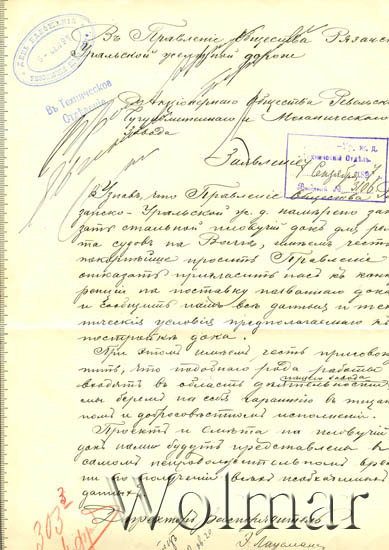 Въ Правленіе Общества Рязанско
Уральской желѣзной дороги
Въ Техническое
Отдѣленіе
Акціонернаго Общества Ревельскаго
Чугунолитейнаго и Механическаго
Завода
Заявленіе
Узнавъ, что Правленіе Общества Ря
занско-Уральской ж. д. намѣрено зака
зать стальной пловучій докъ для ремон
та судовъ на Волгѣ, имѣемъ честь
покорнѣйше просить Правленіе не
отказать пригласить насъ къ конку
ренціи на поставку названнаго дока
и сообщить намъ всѣ данныя и тех
ническія условія предполагаемаго къ
постройкѣ дока.
При этомъ имѣемъ честь присовоку
пить, что подобнаго рода работы
входятъ въ область дѣятельности
нашего завода
мы беремъ на себя гарантію въ тщатель
номъ и добросовѣстномъ исполненіи.
Проектъ и смѣта на пловучій
докъ нами будутъ представлены въ
самомъ непродолжительномъ време
ни по полученіи всѣхъ необходимыхъ
данныхъ.
Директоръ Распорядитель
303
Wolmar